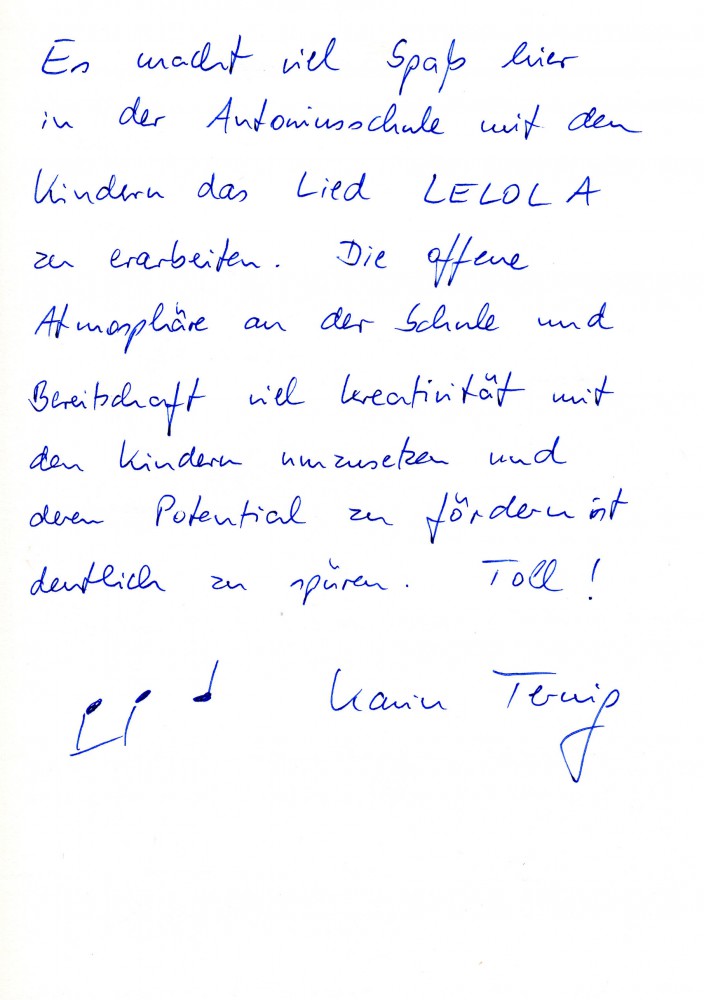 Es macht viel Spaß hier
in der Antoniusschule mit den
Kindern das Lied LELOLA
zu erarbeiten. Die offene
Atmosphäre an der Schule und
Bereitschaft viel Kreativität mit
den Kindern umzusetzen und
deren Potential zu fördern ist
deutlich zu spüren. Toll!
Karin